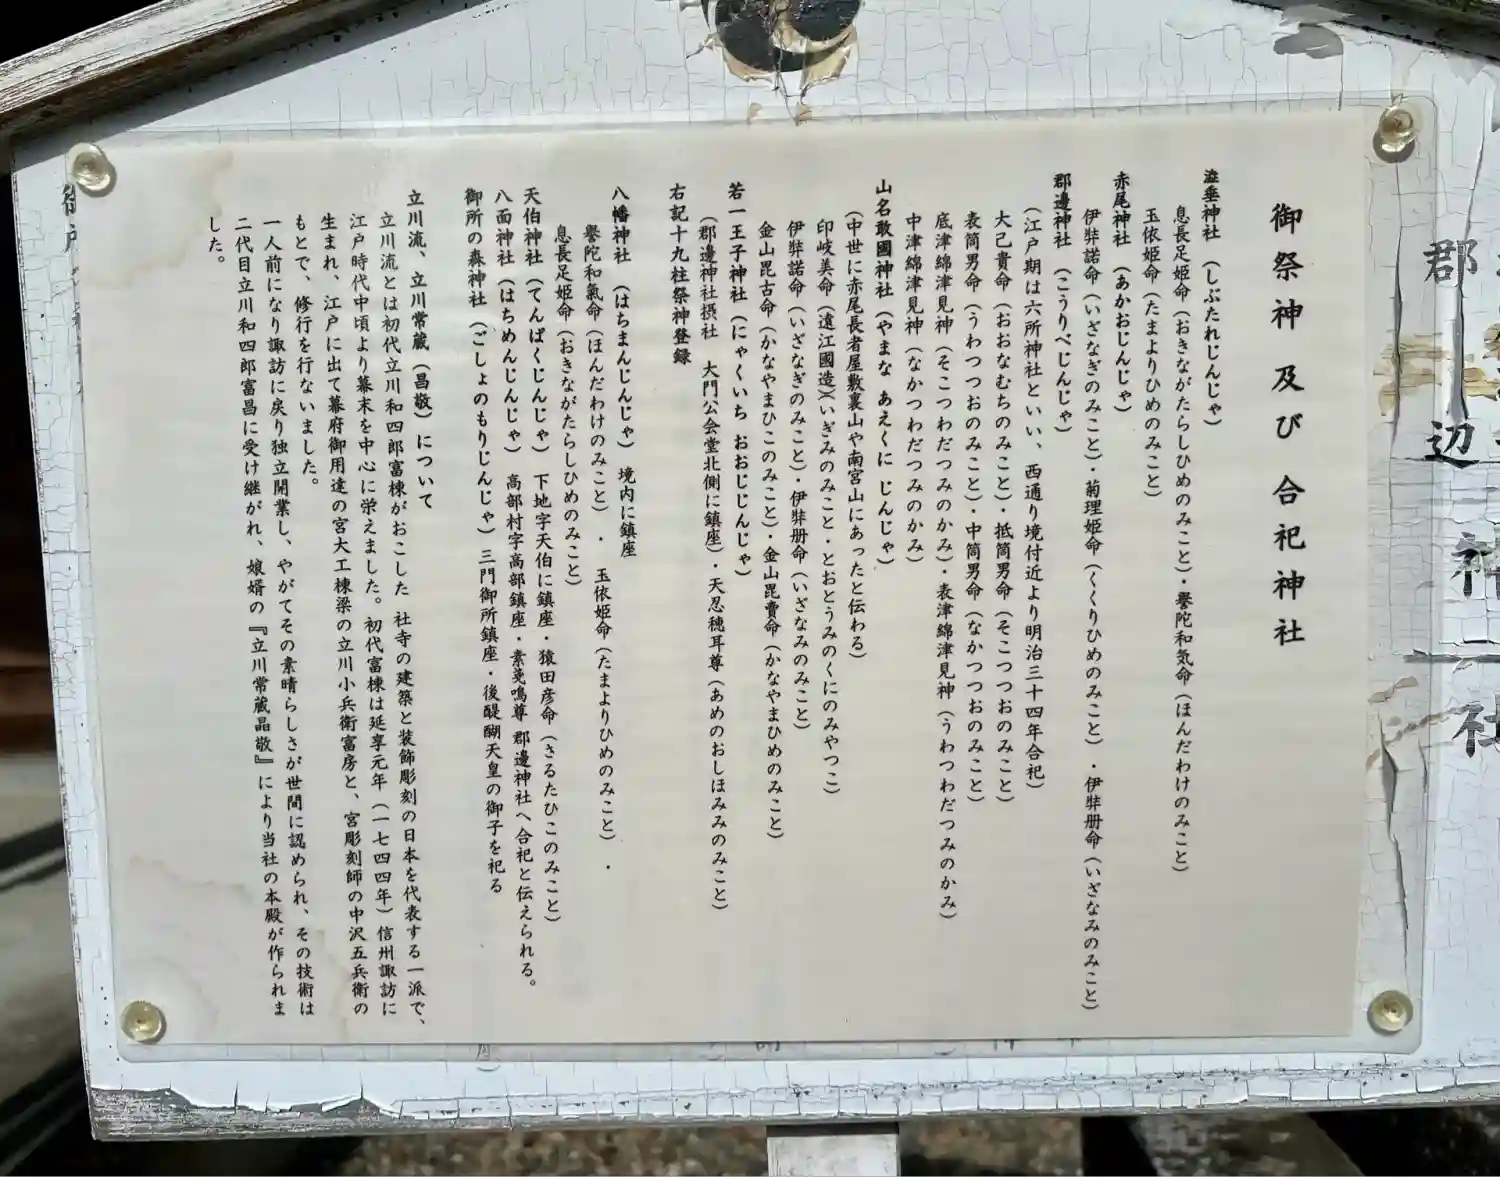 御祭神及び合祀神社
澁垂神社 (しぶたれじんじゃ)
息長足姫命(おきながたらしひめのみこと)・譽陀和気命(ほんだわけのみこと)
玉依姫命(たまよりひめのみこと)
赤尾神社 (あかおじんじゃ)
伊弉諾命(いざなぎのみこと)・菊理姫命(くくりひめのみこと) ・伊弉册命(いざなみのみこと)
郡邊神社 (こうりべじんじゃ)
(江戸期は六所神社といい、西通り境付近より明治三十四年合祀)
大己貴命(おおなむちのみこと)・抵筒男命(そこつつおのみこと)
表筒男命(うわつつおのみこと)・中筒男命(なかつつおのみこと)
底津綿津見神(そこつわだつみのかみ)・表津綿津見神(うわつわだつみのかみ)
中津綿津見神(なかつわだつみのかみ)
山名敢國神社(やまな あえくに じんじゃ)
(中世に赤尾長者屋敷裏山や南宮山にあったと伝わる)
印岐美命(遠江國造)(いぎみのみこと・とおとうみのくにのみやつこ)
伊弉諾命(いざなぎのみこと)・伊弉册命(いざなみのみこと)
金山毘古命(かなやまひこのみこと)・金山毘賣命(かなやまひめのみこと)
若一王子神社(にゃくいち おおじじんじゃ)
(郡邊神社摂社 大門公会堂北側に鎮座)・天忍穂耳尊(あめのおしほみみのみこと)
右記十九柱祭神登録
八幡神社 (はちまんじんじゃ) 境内に鎮座
譽陀和氣命(ほんだわけのみこと) ・ 玉依姫命(たまよりひめのみこと) ・
息長足姫命(おきながたらしひめのみこと)
天伯神社(てんぱくじんじゃ) 下地字天伯に鎮座・猿田彦命(さるたひこのみこと)
八面神社(はちめんじんじゃ) 高部村字高部鎮座・素戔鳴尊 郡邊神社へ合祀と伝えられる。
御所の森神社 (ごしょのもりじんじゃ) 三門御所鎮座・後醍醐天皇の御子を祀る
立川流、立川常蔵(昌敬)について
立川流とは初代立川和四郎富棟がおこした 社寺の建築と装飾彫刻の日本を代表する一派で、
江戸時代中頃より幕末を中心に栄えました。初代富棟は延享元年(一七四四年)信州諏訪に
生まれ、江戸に出て幕府御用達の宮大工棟梁の立川小兵衛富房と、宮彫刻師の中沢五兵衛の
もとで、修行を行ないました。
一人前になり諏訪に戻り独立開業し、やがてその素晴らしさが世間に認められ、その技術は
二代目立川和四郎富昌に受け継がれ、娘婿の『立川常蔵晶敬』により当社の本殿が作られま
した。
郡辺神社